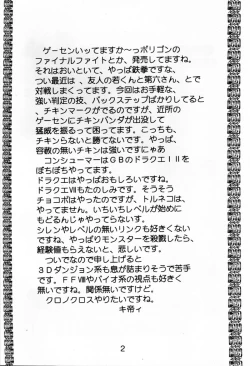 ゲーセンいってますか～っポリゴンの
ファイナルファイトとか、発売してますね。
それはおいといて、やっぱ鉄拳ですな、
つい最近は、友人の若くんと第六さん、とで
対戦しまくってます。今回はお手軽な、
強い判定の技、バックステップばかりしてると
、チキンマークがでるのですが、近所の
ゲーセンにチキンパンダが出没して
猛威を振るって困ってます。こっちも、
チキンらないと勝てないです。やっぱ、
容赦の無いチキンは強いですにゃあ
コンシューマーはGBのドラクエIIを
ぼちぼちやってます。
ドラクエはやっぱおもしろいですね。
ドラクエVIIもたのしみです。そうそう
チョコボはやったのですが、トルネコは、
やってません。いちいちレベルが始めに
もどるんじゃやってらないす。
シレンやレベルの無いリンクも好きくない
ですね、やっぱりモンスターを殺戮したら、
経験値もらえないと、悲しいです。
ついでなので申し上げると
３Dダンジョン系も息が詰まりそうで苦手
です。FFVIIIやバイオ系の視点も好きく
無いですね。関係無いですけど。
クロノクロスやりたいですね。
キ帝ィ
2